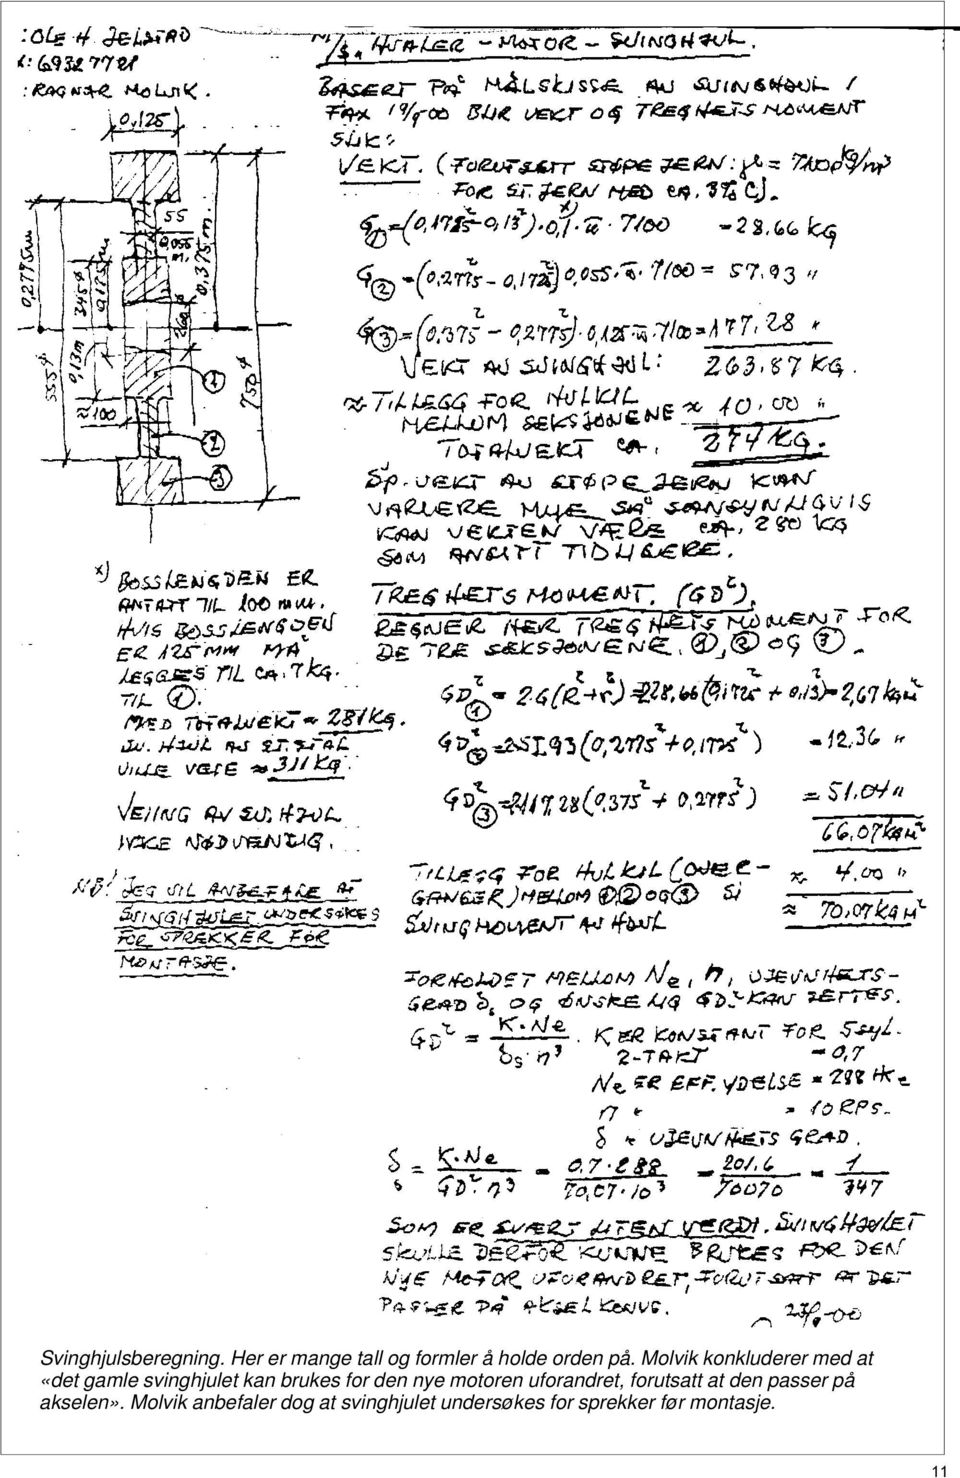 :OLE H JELSTAD
:69327721
:RAGNAR MOLVIK.
M/S. HVALER - MOTOR - SVINGHJUL.
BASERT PÅ MÅLSKISSE AV SVINGHJUL I
FAX 19/9-00 BLIR VEKT OG TREGHETSMOMENT
SLIK:
VEKT. (FORUTSATT STØPEJERN: μ = 7100 kg/m³
FOR ST. JERN MED CA. 3% C).
G① = (0,1725² - 0,13²)·0,1·π·7100 = 28,66 KG
G② = (0,2775² - 0,1725²) 0,055·π·7100 = 57,93 "
G③ = (0,375² - 0,2775²)·0,125·π·7100 = 177,28 "
VEKT AV SVINGHJUL: 263,87 KG.
≈ TILLEGG FOR HULKIL
MELLOM SEKSJONENE ≈ 10,00 "
TOTALVEKT CA. 274 KG.
SP. VEKT AV STØPEJERN KAN
VARIERE MYE SÅ SANSYNLIGVIS
KAN VEKTEN VÆRE CA. 280 KG
SOM ANGITT TIDLIGERE.
0,125
55
0,055
m.
0,2775m
345ø
0,375m.
260ø
0,13m
555ø
750ø
≈100
①
②
③
x) BOSSLENGDEN ER
ANTATT TIL 100 mm.
HVIS BOSSLENGDEN
ER 125 MM MÅ
LEGGES TIL CA. 7 KG.
TIL ①.
MED TOTALVEKT ≈ 281 KG.
SV. HJUL AV ST. STÅL
VILLE VEIE ≈ 311 KG.
VEIING AV SV. HJUL
IKKE NØDVENDIG.
NB! JEG VIL ANBEFALE AT
SVINGHJULET UNDERSØKES
FOR SPREKKER FØR
MONTASJE.
TREGHETSMOMENT. (GD²).
REGNER HER TREGHETSMOMENT FOR
DE TRE SEKSJONENE. ①, ② OG ③.
GD²① = 2·G(R² + r²) = 2·28,66(0,1725² + 0,13²) = 2,67 kgm²
GD²② = 2·57,93(0,2775² + 0,1725²) = 12,36 "
GD²③ = 2·177,28(0,375² + 0,2775²) = 51,04 "
66,07 kgm²
TILLEGG FOR HULKIL (OVER- ≈ 4,00 "
GANGER) MELLOM ①② OG ③
SVINGMOMENT AV HJUL ≈ 70,07 KGM²
FORHOLDET MELLOM Ne, n, UJEVNHETS-
GRAD δs OG ØNSKELIG GD² KAN SETTES.
GD² = K·Ne / δs·n³. K ER KONSTANT FOR 5 syl.
2-TAKT = 0,7
Ne ER EFF. YDELSE = 288 HKe
n " = 10 RPS.
δ " UJEVNHETSGRAD.
δs = K·Ne / GD²·n³ = 0,7·288 / 70,07·10³ = 201,6 / 70070 = 1 / 347
SOM ER SVÆRT LITEN VERDI. SVINGHJULET
SKULLE DERFOR KUNNE BRUKES FOR DEN
NYE MOTOR UFORANDRET, FORUTSATT AT DET
PASSER PÅ AKSELKONUS.
Svinghjulsberegning. Her er mange tall og formler å holde orden på. Molvik konkluderer med at
«det gamle svinghjulet kan brukes for den nye motoren uforandret, forutsatt at den passer på
akselen». Molvik anbefaler dog at svinghjulet undersøkes for sprekker før montasje.
11